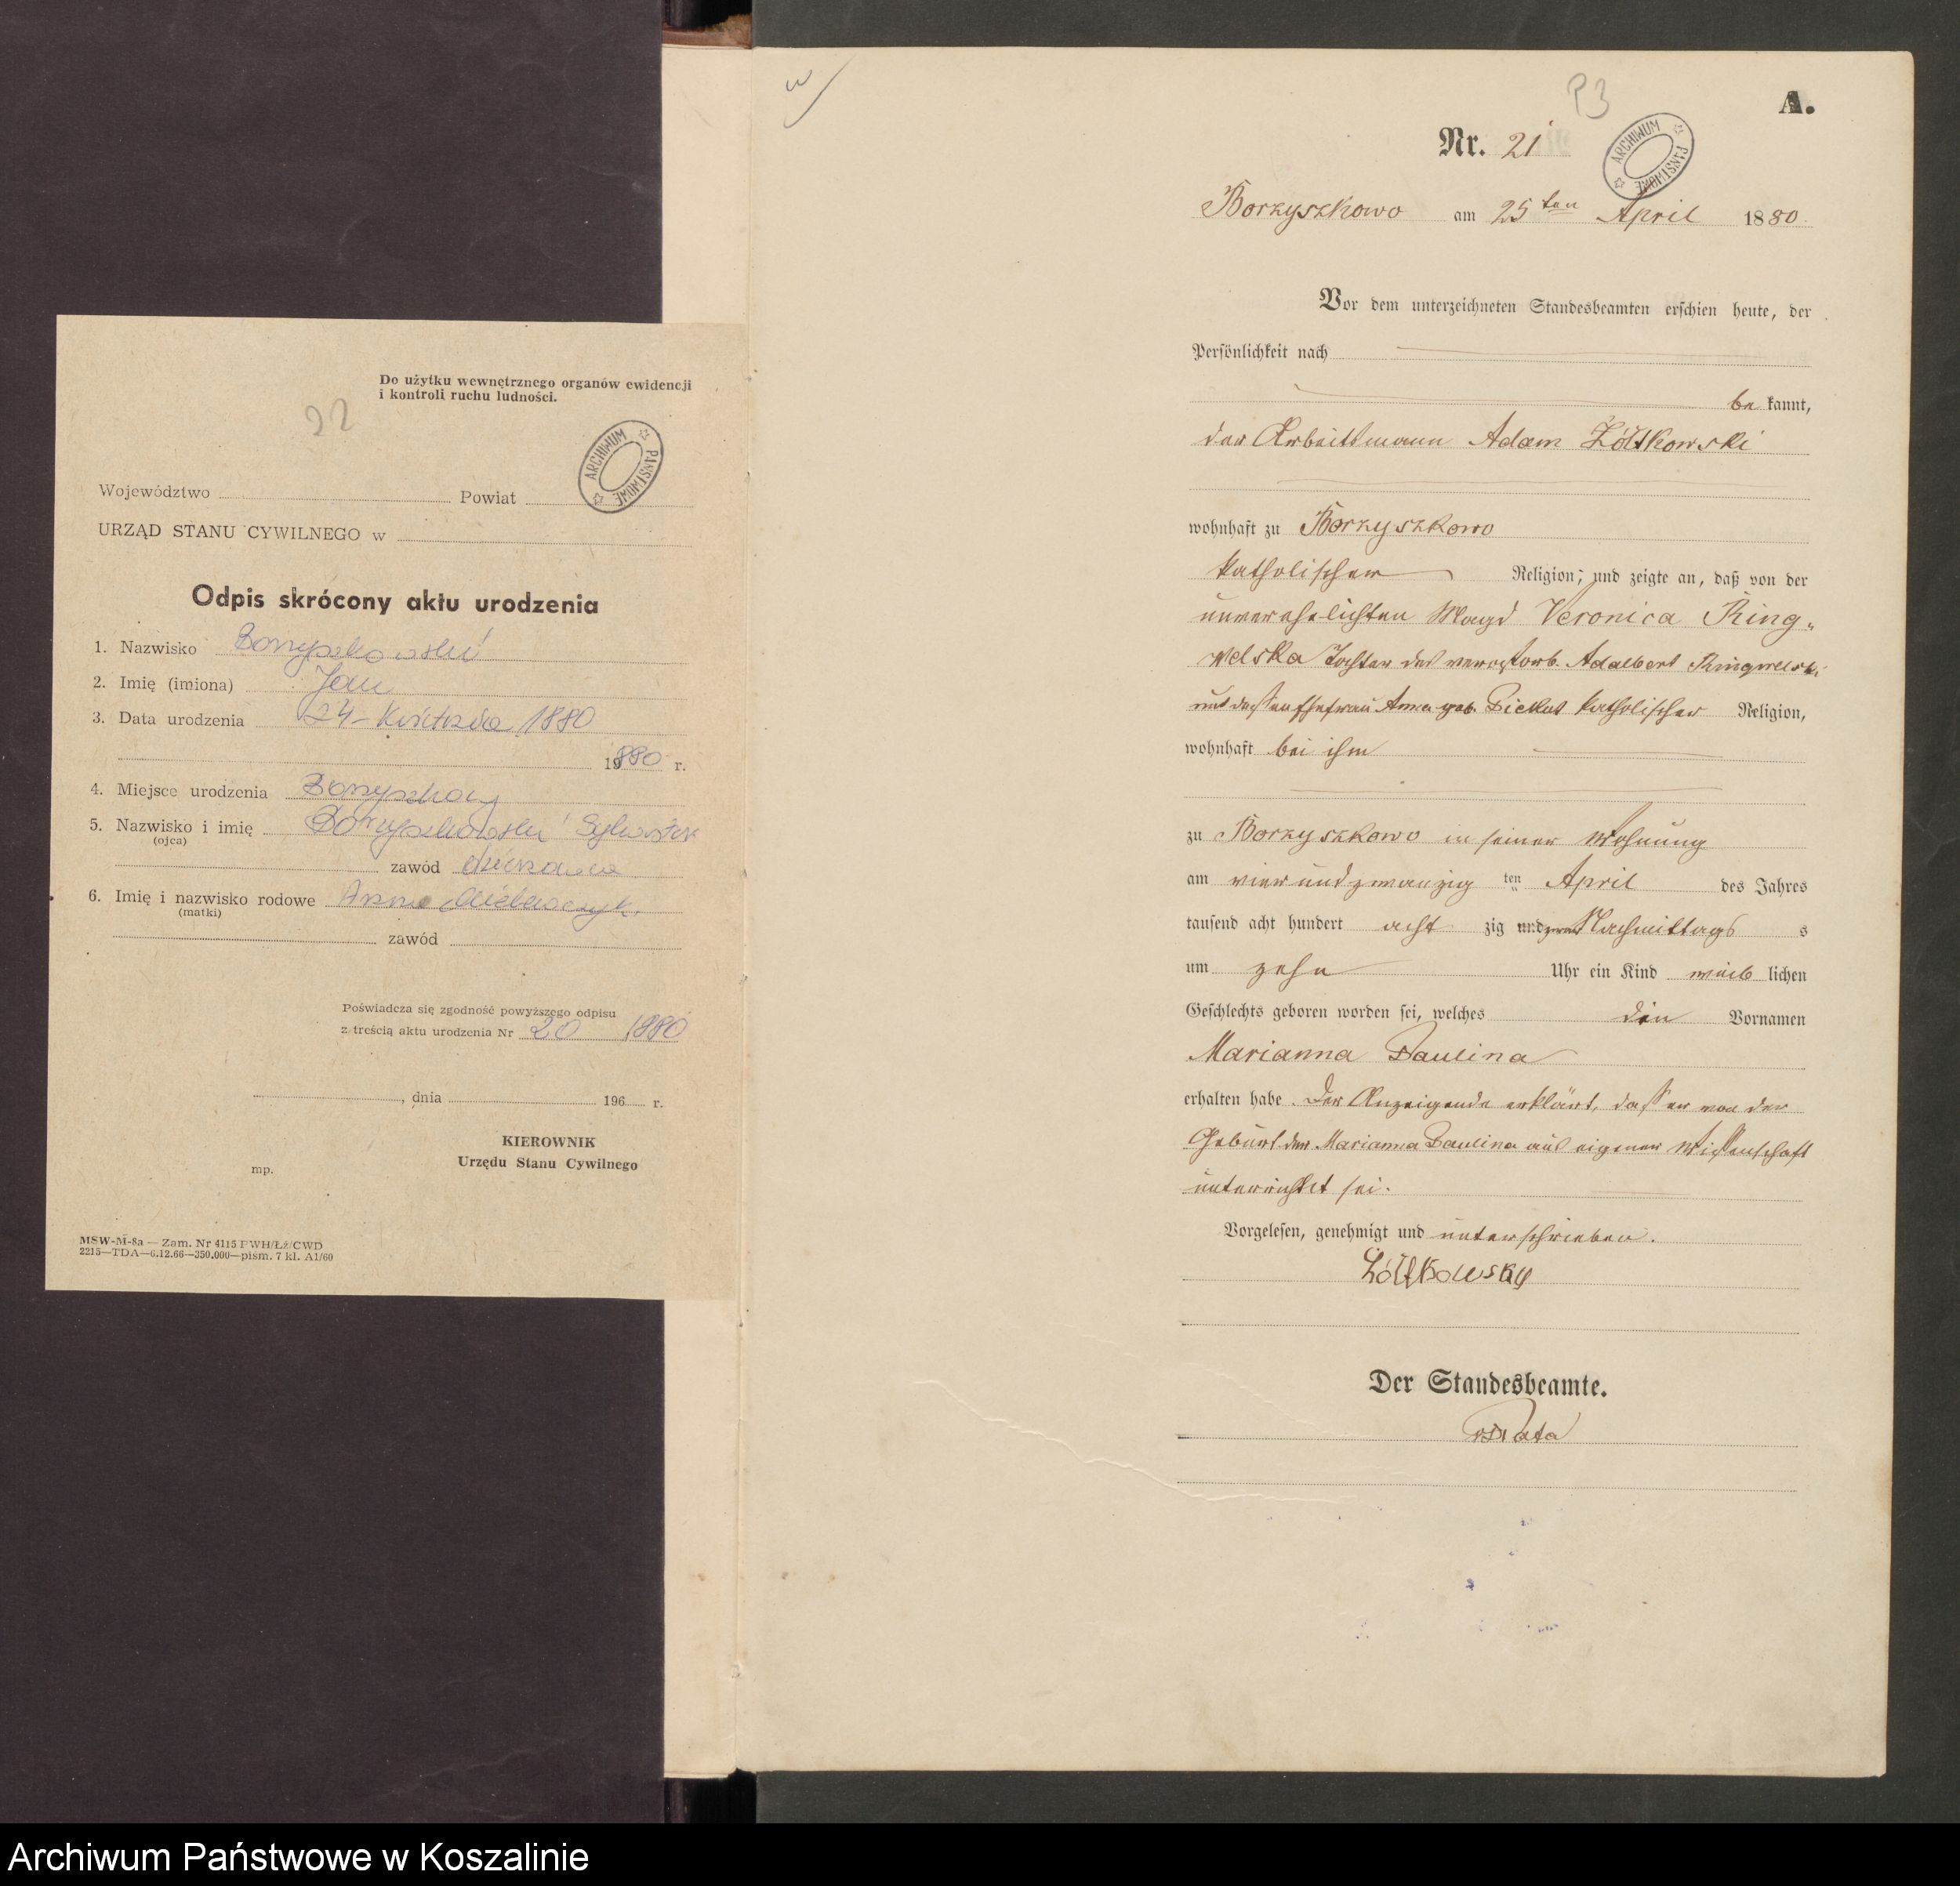 22
Do użytku wewnętrznego organów ewidencji
i kontroli ruchu ludności.
ARCHIWUM PAŃSTWOWE
Województwo Powiat
URZĄD STANU CYWILNEGO w
Odpis skrócony aktu urodzenia
1. Nazwisko Borzyszkowski
2. Imię (imiona) Jan
3. Data urodzenia 24 - Kwietnia 1880
19880 r.
4. Miejsce urodzenia Borzyszkowy
5. Nazwisko i imię Borzyszkowski Sylwester
(ojca)
zawód
6. Imię i nazwisko rodowe Anna
(matki)
zawód
Poświadcza się zgodność powyższego odpisu
z treścią aktu urodzenia Nr 20 1880
, dnia 196 r.
KIEROWNIK
Urzędu Stanu Cywilnego
mp.
MSW-M-8a — Zam. Nr 4115 PWH/Łź/CWD
2215—TDA—6.12.66—350.000—piśm. 7 kl. A1/60
A.
Nr. 21
ARCHIWUM PAŃSTWOWE
Borzyszkowo am 25ten April 1880
Vor dem unterzeichneten Standesbeamten erschien heute, der
Persönlichkeit nach
be kannt,
der Arbeitsmann Adam Żółtkowski
wohnhaft zu Borzyszkowo
katholischer Religion, und zeigte an, daß von der
unverehelichten Magd Veronica Ring-
welska Tochter des verstorb. Adalbert Ringwelski
und dessen Ehefrau Anna geb. katholischer Religion,
wohnhaft bei ihm
zu Borzyszkowo in seiner Wohnung
am vier und zwanzig ten April des Jahres
tausend acht hundert acht zig und Nachmittags s
um zehn Uhr ein Kind weib lichen
Geschlechts geboren worden sei, welches den Vornamen
Marianna Paulina
erhalten habe. Der Anzeigende erklärt, daß er von der
Geburt der Marianna Paulina aus eigener Wissenschaft
unterrichtet sei.
Vorgelesen, genehmigt und unterschrieben.
Żółtkowsky
Der Standesbeamte.
Archiwum Państwowe w Koszalinie